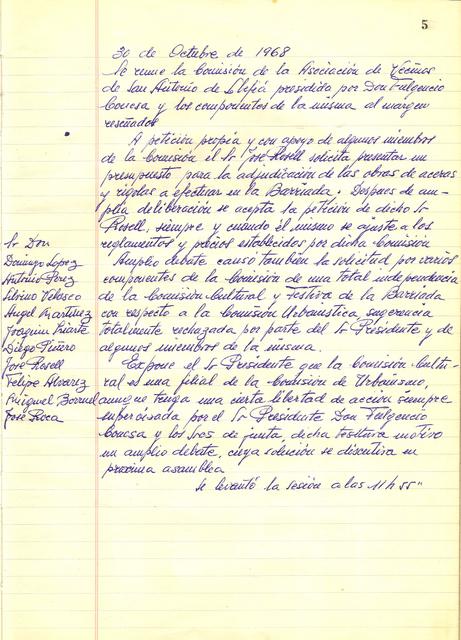 5
30 de Octubre de 1968
Se reune la Comisión de la Asociación de Vecinos
de San Antonio de Llefiá presidida por Don Fulgencio
Conesa y los componentes de la misma al margen
reseñados
A petición propia y con apoyo de algunos miembros
de la Comisión el Sr José Rosell solicita presentar un
presupuesto para la adjudicación de las obras de aceras
y rigolas a efectuar en la Barriada. Despues de am-
plia deliberación se acepta la petición de dicho Sr
Rosell, siempre y cuando el mismo se ajuste a los
reglamentos y precios establecidos por dicha Comisión
Amplio debate causó tambien la solicitud por varios
componentes de la Comisión de una total independencia
de la Comisión Cultural y Festiva de la Barriada
con respecto a la Comisión Urbanistica, sugerencia
totalmente rechazada por parte del Sr Presidente y de
algunos miembros de la misma.
Expone el Sr Presidente que la Comisión Cultu-
ral es una filial de la Comisión de Urbanismo,
aunque tenga una cierta libertad de acción siempre
supervisada por el Sr Presidente Don Fulgencio
Conesa y los Sres de junta, dicha tesitura motivo
un amplio debate, cuya solución se discutira en
proxima asamblea
Se levantó la sesión a las 11 h 55"
Sr Don
Domingo Lopez
Antonio Perez
Silvino Velasco
Angel Martinez
Joaquin Iriarte
Diego Piñero
José Rosell
Felipe Alvarez
Miguel Bernuel
José Roca